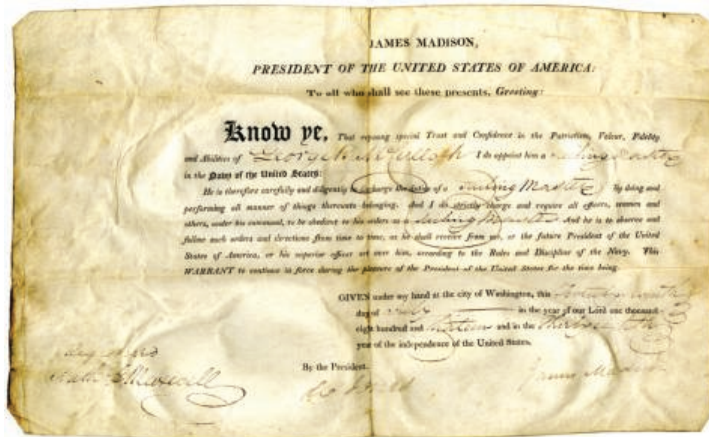 JAMES MADISON,
PRESIDENT OF THE UNITED STATES OF AMERICA:
To all who shall see these presents, Greeting:
Know ye, That reposing special Trust and Confidence in the Patriotism, Valour, Fidelity
and Abilities of George I do appoint him a Sailing Master
in the Navy of the United States:
He is therefore carefully and diligently to discharge the duties of a Sailing Master by doing and
performing all manner of things thereunto belonging. And I do strictly charge and require all officers, seamen and
others, under his command, to be obedient to his orders as a Sailing Master And he is to observe and
follow such orders and directions from time to time, as he shall receive from me, or the future President of the United
States of America, or his superior officer set over him, according to the Rules and Discipline of the Navy. This
WARRANT to continue in force during the pleasure of the President of the United States for the time being.
GIVEN under my hand at the city of Washington, this
day of in the year of our Lord one thousand
eight hundred and and in the
year of the independence of the United States.
By the President.
James Madison